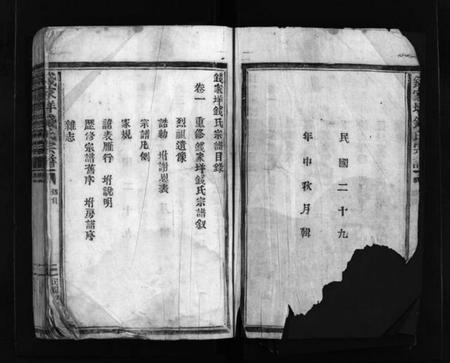 民國二十九
年中秋月輯
錢家垟錢氏宗譜目錄
卷一 重修錢家垟錢氏宗譜敘
烈祖遺像
誥勅 坿謝恩表
宗譜凡例
家規
譜表雁行 坿說明
歷修宗譜舊序 坿房譜序
雜志
錢家垟錢氏宗譜